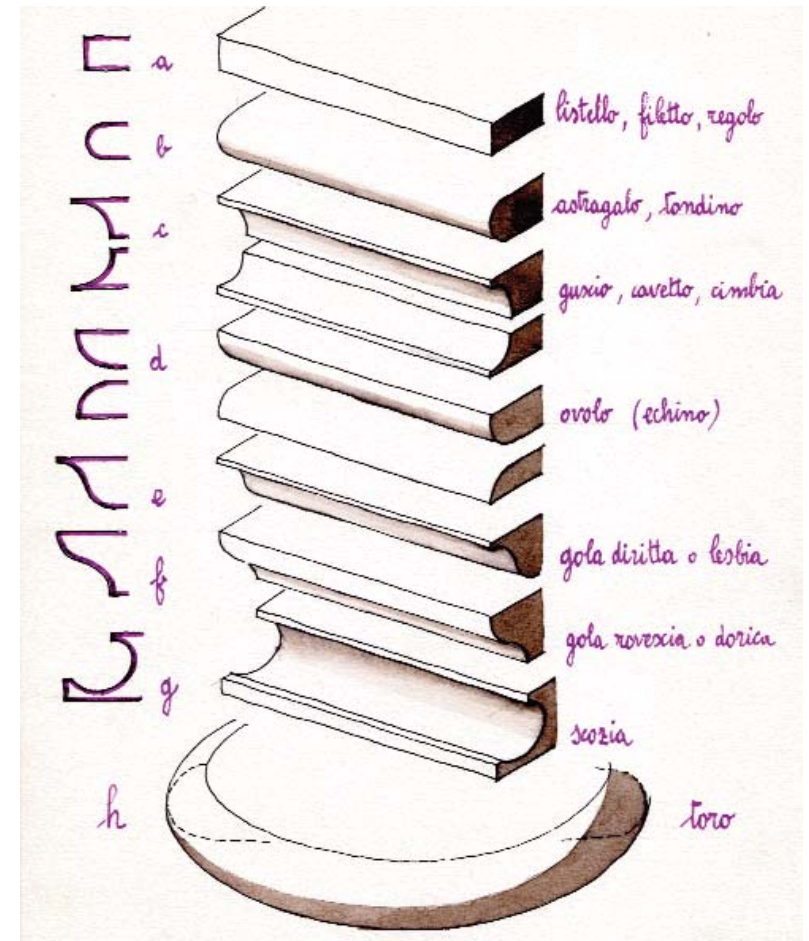 a
listello, filetto, regolo
b
astragalo, tondino
c
guscio, cavetto, cimbia
d
ovolo (echino)
e
gola diritta o lesbia
f
gola rovescia o dorica
g
scozia
h
toro